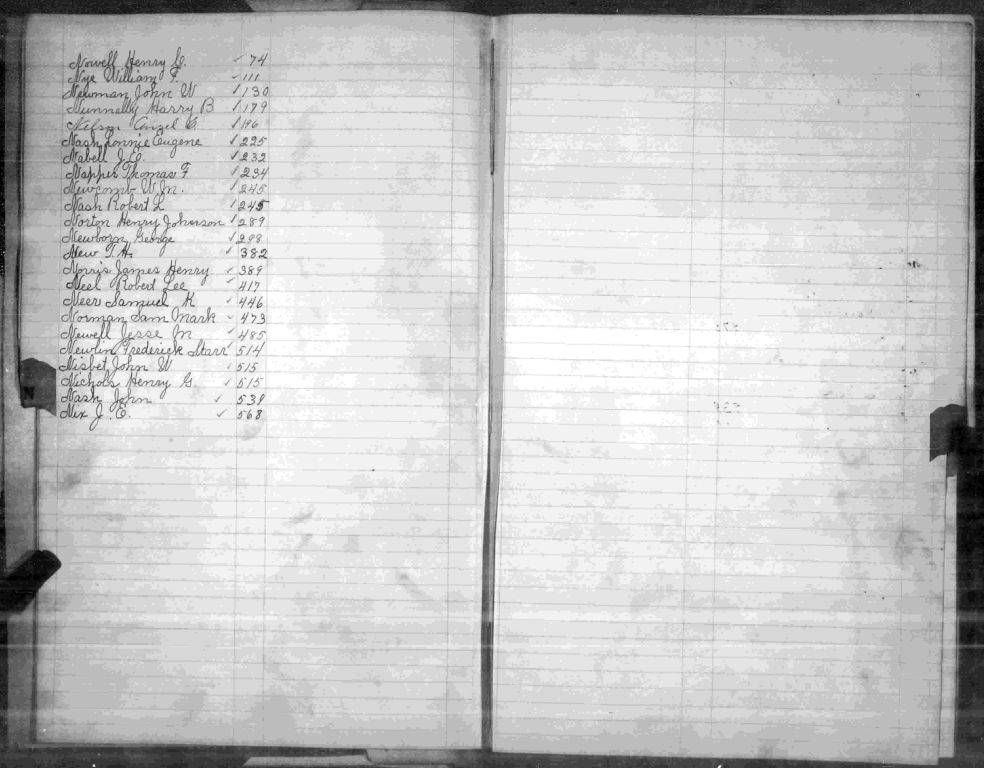 Nowell Henry C. ✓ 74
Nye William F. ✓ 111
Newman John W ✓ 130
Nunnelly Harry B ✓ 179
Nelson Anzel C. ✓ 196
Nash Lonnie Eugene ✓ 225
Nabell J. C. ✓ 232
Napper Thomas F ✓ 234
Newcomb W. M. ✓ 245
Nash Robert L ✓ 245
Norton Henry Johnson ✓ 289
Newborn George ✓ 298
New T. H. ✓ 382
Norris James Henry ✓ 389
Neel Robert Lee ✓ 417
Neer Samuel K ✓ 446
Norman Sam Mark ✓ 473
Newell Jesse M ✓ 485
Newlin Frederick Starr ✓ 514
Nisbet John W ✓ 515
Nichols Henry G. ✓ 515
Nash John ✓ 538
Nix J. E. ✓ 568
N